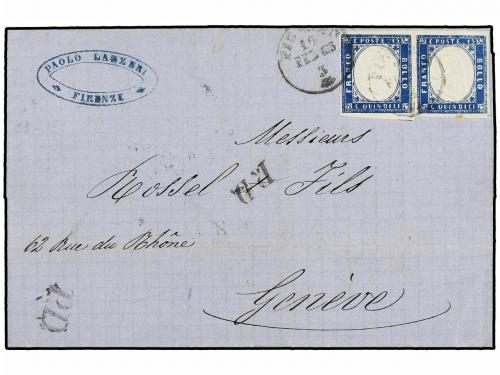 PAOLO LANZENI
FIRENZE
FEB 63
C. POSTE 15 C. POSTE 15
FRANCO BOLLO FRANCO BOLLO
C. QUINDICI C. QUINDICI
Messieurs
Rossel & Fils
P.D.
62 Rue du Rhône
Genève
P.D.